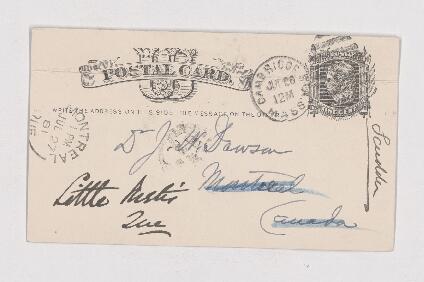 POSTAL CARD.
WRITE THE ADDRESS ON THIS SIDE - THE MESSAGE ON THE OTHER
CAMBRIDGE
JUL 26
12M
MASS
MONTREAL
1 PM
JUL 27
Dr J. W. Dawson
Montreal
Canada
Little Metis
Que
Scudder